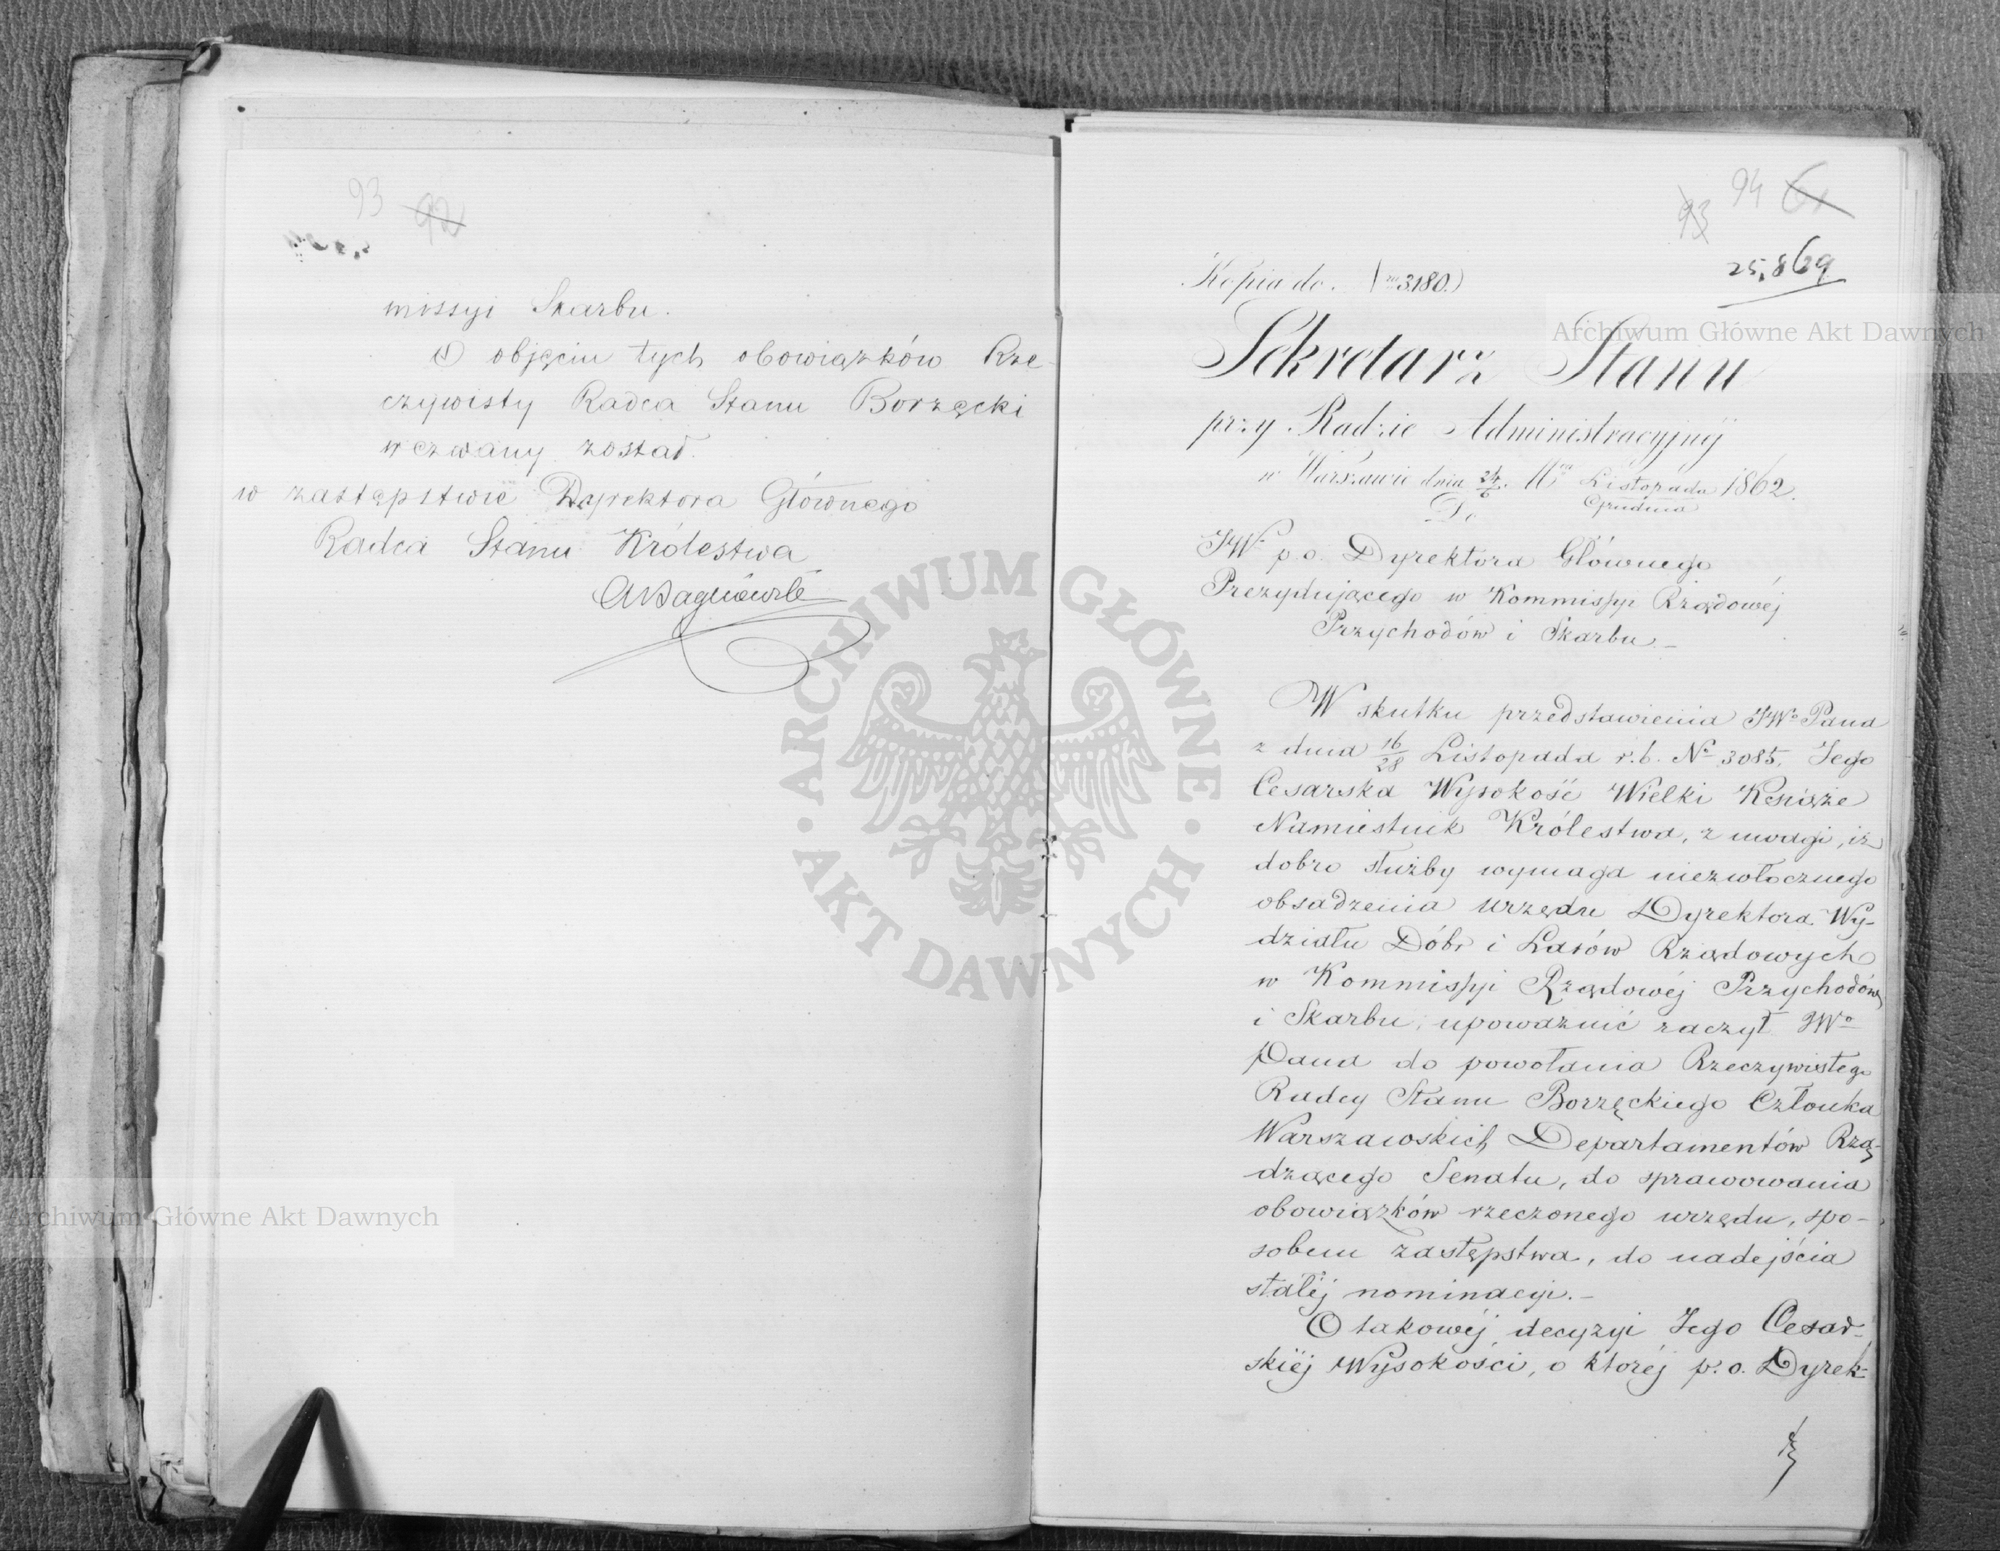 93 92
missyi Skarbu.
O objęciu tych obowiązków Rze-
czywisty Radca Stanu Borzęcki
wezwany został.
w zastępstwie Dyrektora Głównego
Radca Stanu Królestwa
93 94
25,869
Kopia do. (Nr 3180.)
Sekretarz Stanu
przy Radzie Administracyjnéj
w Warszawie dnia 24/6 Mca Listopada/Grudnia 1862.
Do
JWo p.o. Dyrektora Głównego
Prezydującego w Kommissyi Rządowéj
Przychodów i Skarbu.–
W skutku przedstawienia JWo Pana
z dnia 16/28 Listopada r.b. No 3085, Jego
Cesarska Wysokość Wielki Książe
Namiestnik Królestwa, z uwagi, iż
dobro służby wymaga niezwłocznego
obsadzenia urzędu Dyrektora Wy-
działu Dóbr i Lasów Rządowych
w Kommissyi Rządowéj Przychodów
i Skarbu, upoważnić raczył JWo
Pana do powołania Rzeczywistego
Radcy Stanu Borzęckiego Członka
Warszawskich Departamentów Rzą-
dzącego Senatu, do sprawowania
obowiązków rzeczonego urzędu, spo-
sobem zastępstwa, do nadejścia
stałéj nominacyi.–
O takowéj decyzyi Jego Cesar-
skiéj Wysokości, o któréj p.o. Dyrek-
Archiwum Główne Akt Dawnych
Archiwum Główne Akt Dawnych
ARCHIWUM GŁÓWNE · AKT DAWNYCH ·